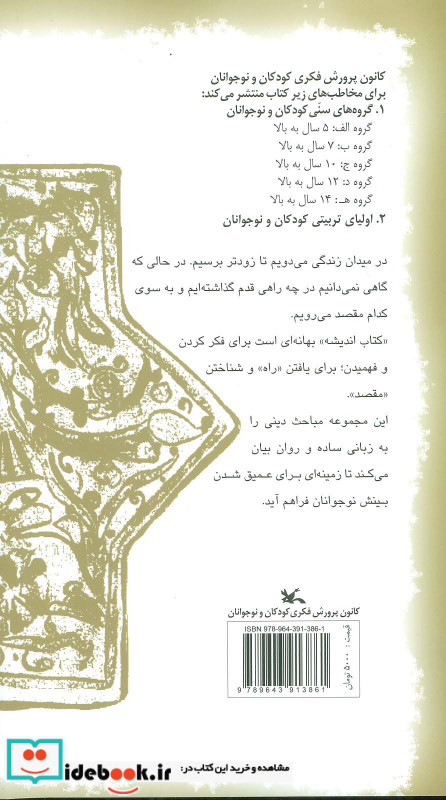 کانون پرورش فکری کودکان و نوجوانان
برای مخاطب‌های زیر کتاب منتشر می‌کند:
۱. گروه‌های سنّی کودکان و نوجوانان
گروه الف: ۵ سال به بالا
گروه ب: ۷ سال به بالا
گروه ج: ۱۰ سال به بالا
گروه د: ۱۲ سال به بالا
گروه هـ: ۱۴ سال به بالا
۲. اولیای تربیتی کودکان و نوجوانان
در میدان زندگی می‌دویم تا زودتر برسیم. در حالی که
گاهی نمی‌دانیم در چه راهی قدم گذاشته‌ایم و به سوی
کدام مقصد می‌رویم.
«کتاب اندیشه» بهانه‌ای است برای فکر کردن
و فهمیدن؛ برای یافتن «راه» و شناختن
«مقصد».
این مجموعه مباحث دینی را
به زبانی ساده و روان بیان
می‌کند تا زمینه‌ای برای عمیق شدن
بینش نوجوانان فراهم آید.
کانون پرورش فکری کودکان و نوجوانان
ISBN 978-964-391-386-1
9 789643 913861
قیمت: ۵۰۰۰ تومان
مشاهده و خرید این کتاب در:
idebook.ir